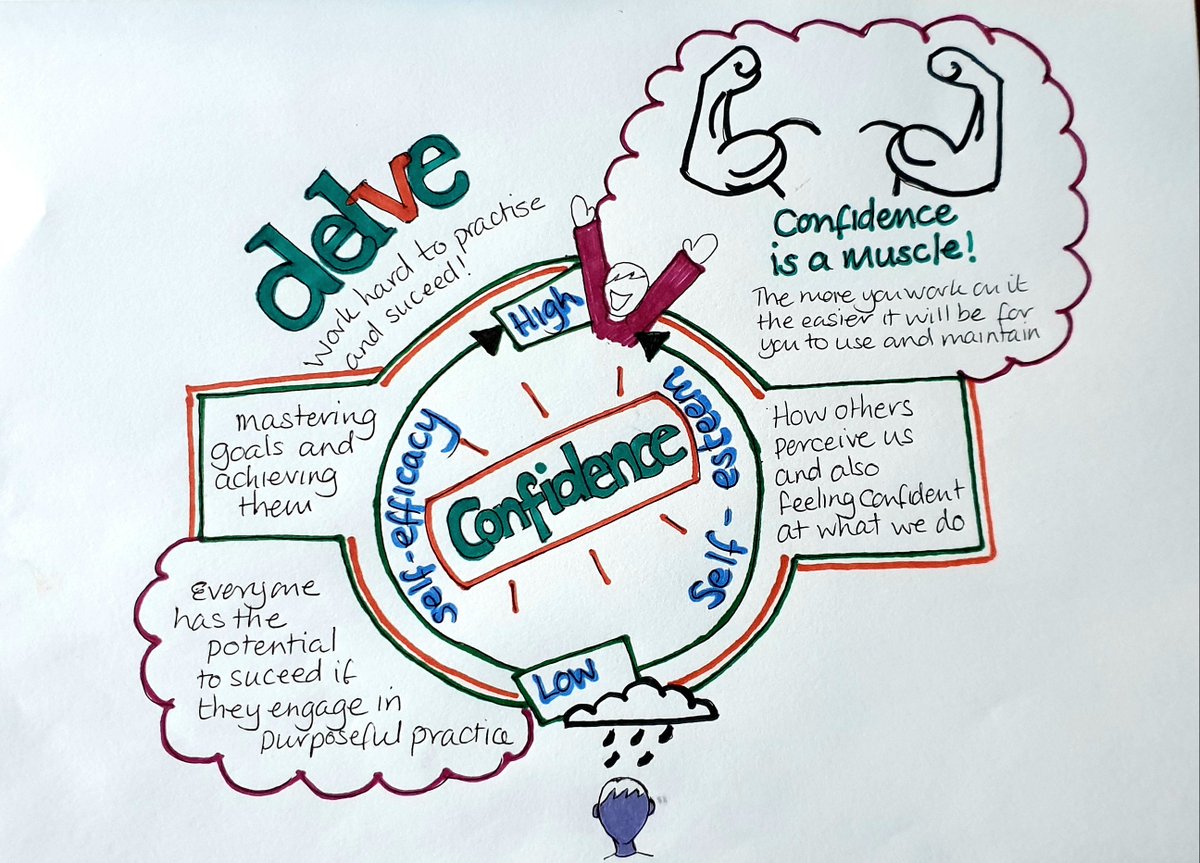 delve
Work hard to practise
and suceed!
Confidence
is a Muscle!
The more you work on it
the easier it will be for
you to use and maintain
High
mastering
goals and
achieving
them
Self-efficacy
Confidence
Self-esteem
How others
perceive us
and also
feeling confident
at what we do
Everyone
has the
potential
to suceed if
they engage in
purposeful practice
Low